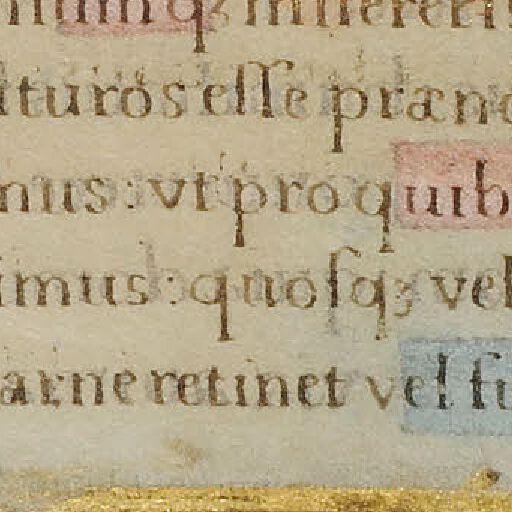 umqꝫ misereris
ituros esse prænos
mus: vt pro quib
imus: quosqꝫ vel
arne retinet vel fu